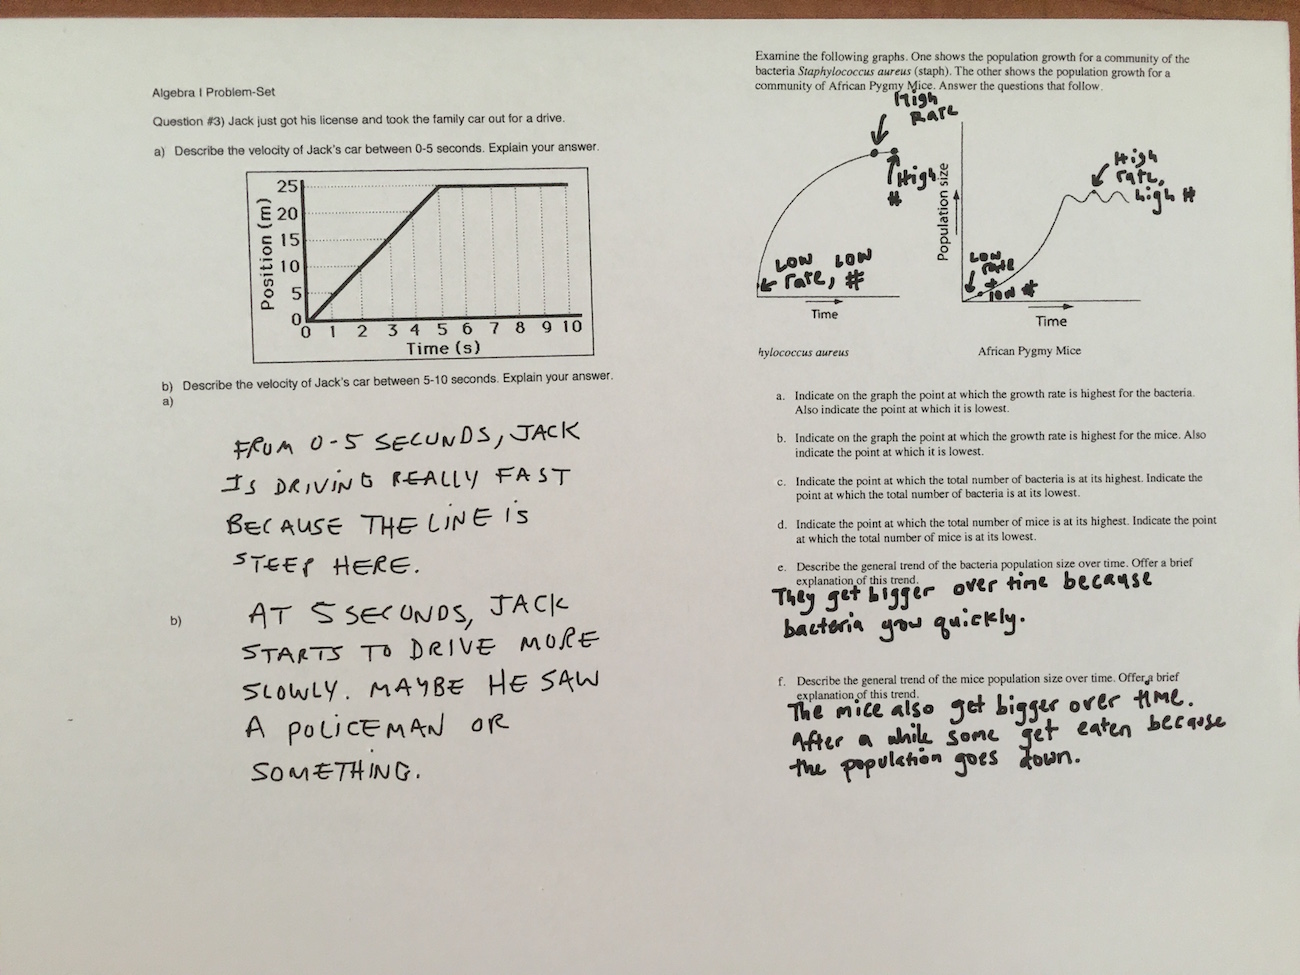 Algebra I Problem-Set
Question #3) Jack just got his license and took the family car out for a drive.
a) Describe the velocity of Jack's car between 0-5 seconds. Explain your answer.
Position (m)
25
20
15
10
5
0
0 1 2 3 4 5 6 7 8 9 10
Time (s)
b) Describe the velocity of Jack's car between 5-10 seconds. Explain your answer.
a)
FROM 0-5 SECONDS, JACK
IS DRIVING REALLY FAST
BECAUSE THE LINE IS
STEEP HERE.
b) AT 5 SECONDS, JACK
STARTS TO DRIVE MORE
SLOWLY. MAYBE HE SAW
A POLICEMAN OR
SOMETHING.
Examine the following graphs. One shows the population growth for a community of the
bacteria Staphylococcus aureus (staph). The other shows the population growth for a
community of African Pygmy Mice. Answer the questions that follow.
High
Rate
High
#
LOW LOW
rate, #
Time
hylococcus aureus
Population size
High
rate,
high #
LOW
rate
+
low #
Time
African Pygmy Mice
a. Indicate on the graph the point at which the growth rate is highest for the bacteria.
Also indicate the point at which it is lowest.
b. Indicate on the graph the point at which the growth rate is highest for the mice. Also
indicate the point at which it is lowest.
c. Indicate the point at which the total number of bacteria is at its highest. Indicate the
point at which the total number of bacteria is at its lowest.
d. Indicate the point at which the total number of mice is at its highest. Indicate the point
at which the total number of mice is at its lowest.
e. Describe the general trend of the bacteria population size over time. Offer a brief
explanation of this trend.
They get bigger over time because
bacteria grow quickly.
f. Describe the general trend of the mice population size over time. Offer a brief
explanation of this trend.
The mice also get bigger over time.
After a while some get eaten because
the population goes down.